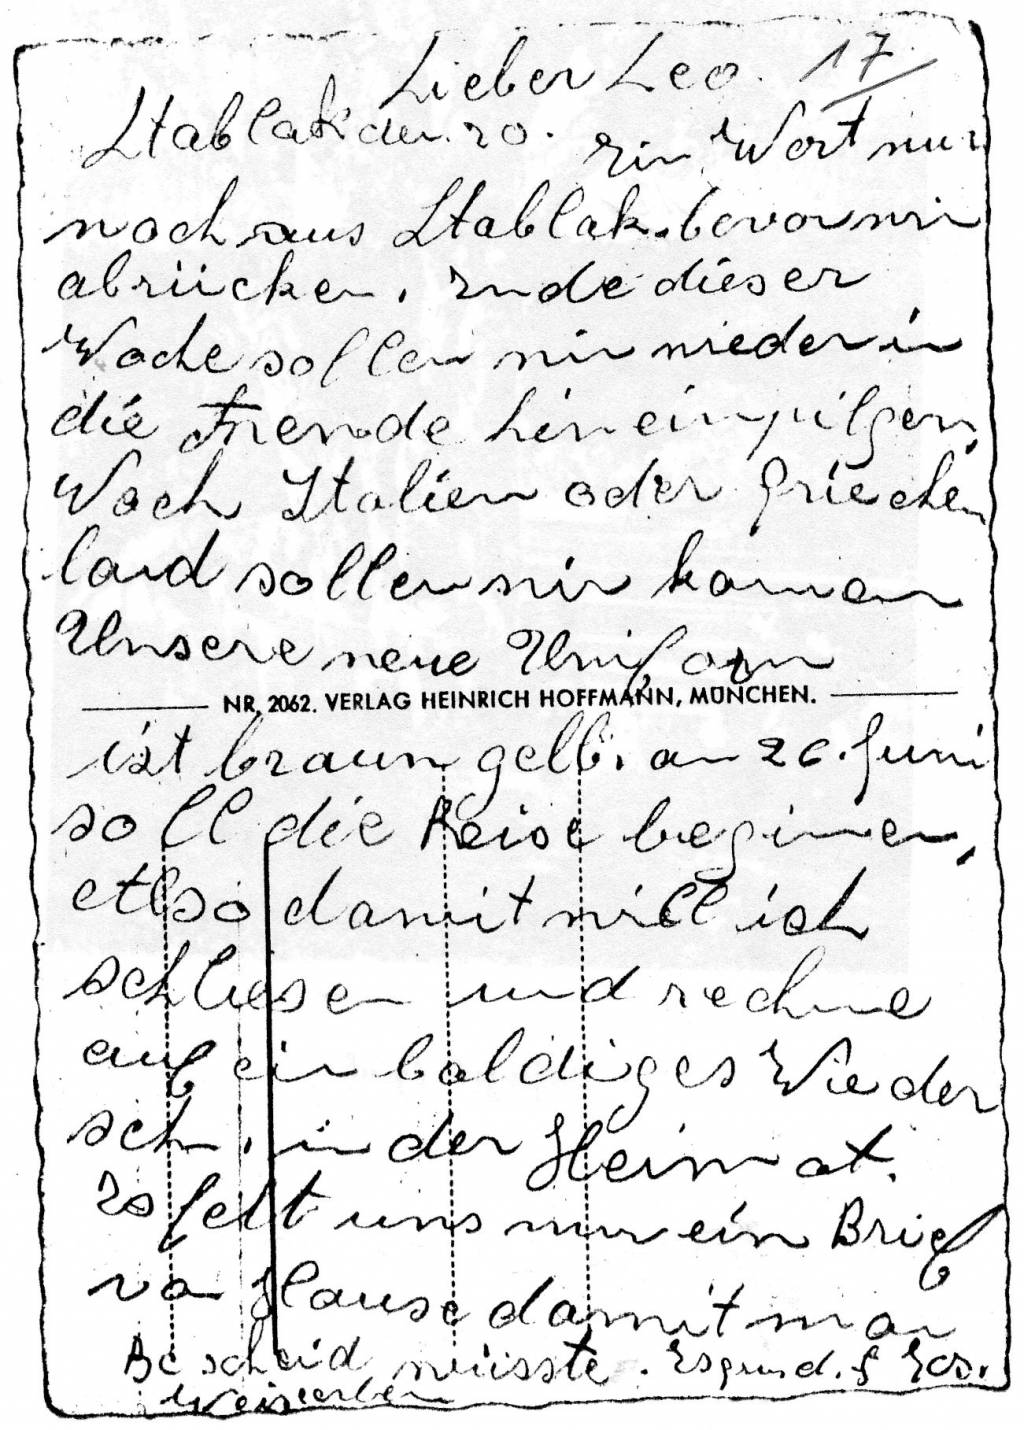 Lieber Leo. 17
Stablak den 20. Ein Wort nur
noch aus Stablak. bevor wir
abrücken. Ende dieser
Woche sollen wir wieder in
die Fremde hineinpilgern,
Nach Italien oder Griechen
land sollen wir komen
Unsere neue Uniform
NR. 2062. VERLAG HEINRICH HOFFMANN, MÜNCHEN.
ist braun gelb. am 26. Juni
soll die Reise beginnen,
also damit will ich
schliesen und rechne
auf ein baldiges Wieder
sehn. in der Heimat.
Es felt uns nur ein Brief
von Hause damit man
Bescheid wüsste. Es